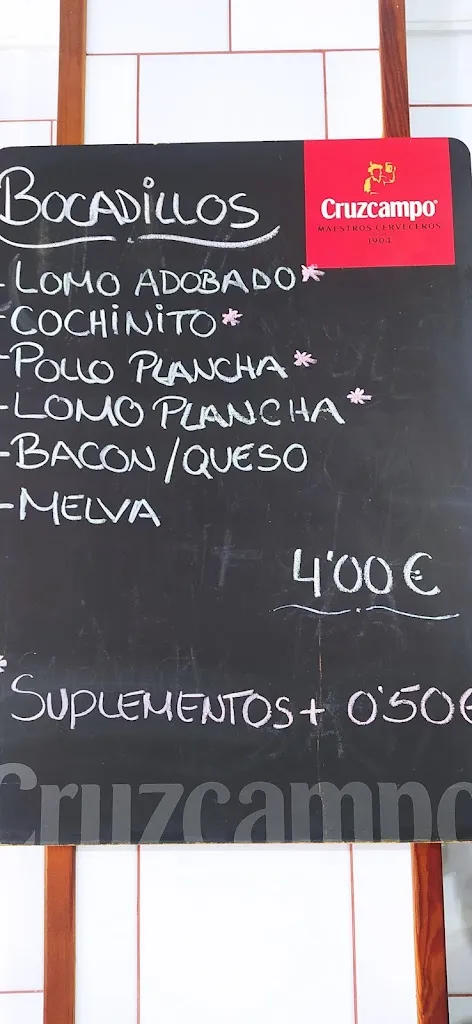 BOCADILLOS
Cruzcampo
MAESTROS CERVECEROS
1904
-LOMO ADOBADO*
-COCHINITO*
-POLLO PLANCHA*
-LOMO PLANCHA*
-BACON/QUESO
-MELVA
4'00€
*SUPLEMENTOS+ 0'50€
Cruzcampo